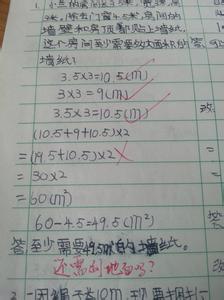 1. 小兰的房间长3.5米,宽3米,高
3米,除去门窗4.5米,房间的
墙壁和房顶都贴上墙纸。
这个房间至少需要多大面积的 答:
墙纸?
3.5×3=10.5(m²)
3×3=9(m²)
3.5×3=10.5(m²)
改
(10.5+9+10.5)×2
=(19.5+10.5)×2
=30×2
=60(m²)
60-4.5=49.5(m²)
答:至少需要49.5m²的墙纸。
还需剪地面吗?
答
改
2. 一困 长10m